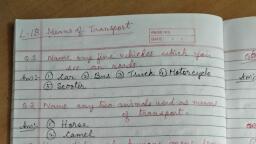 L-18 Means of Transport
PAGE NO.
DATE
Q.1 Name any five vehicles which you
see on roads.
Ans:- ① Car ② Bus ③ Truck ④ Motorcycle
⑤ Scooter
Q.2 Name any two animals used as means
of transport.
Ans:- ① Horse
② Camel